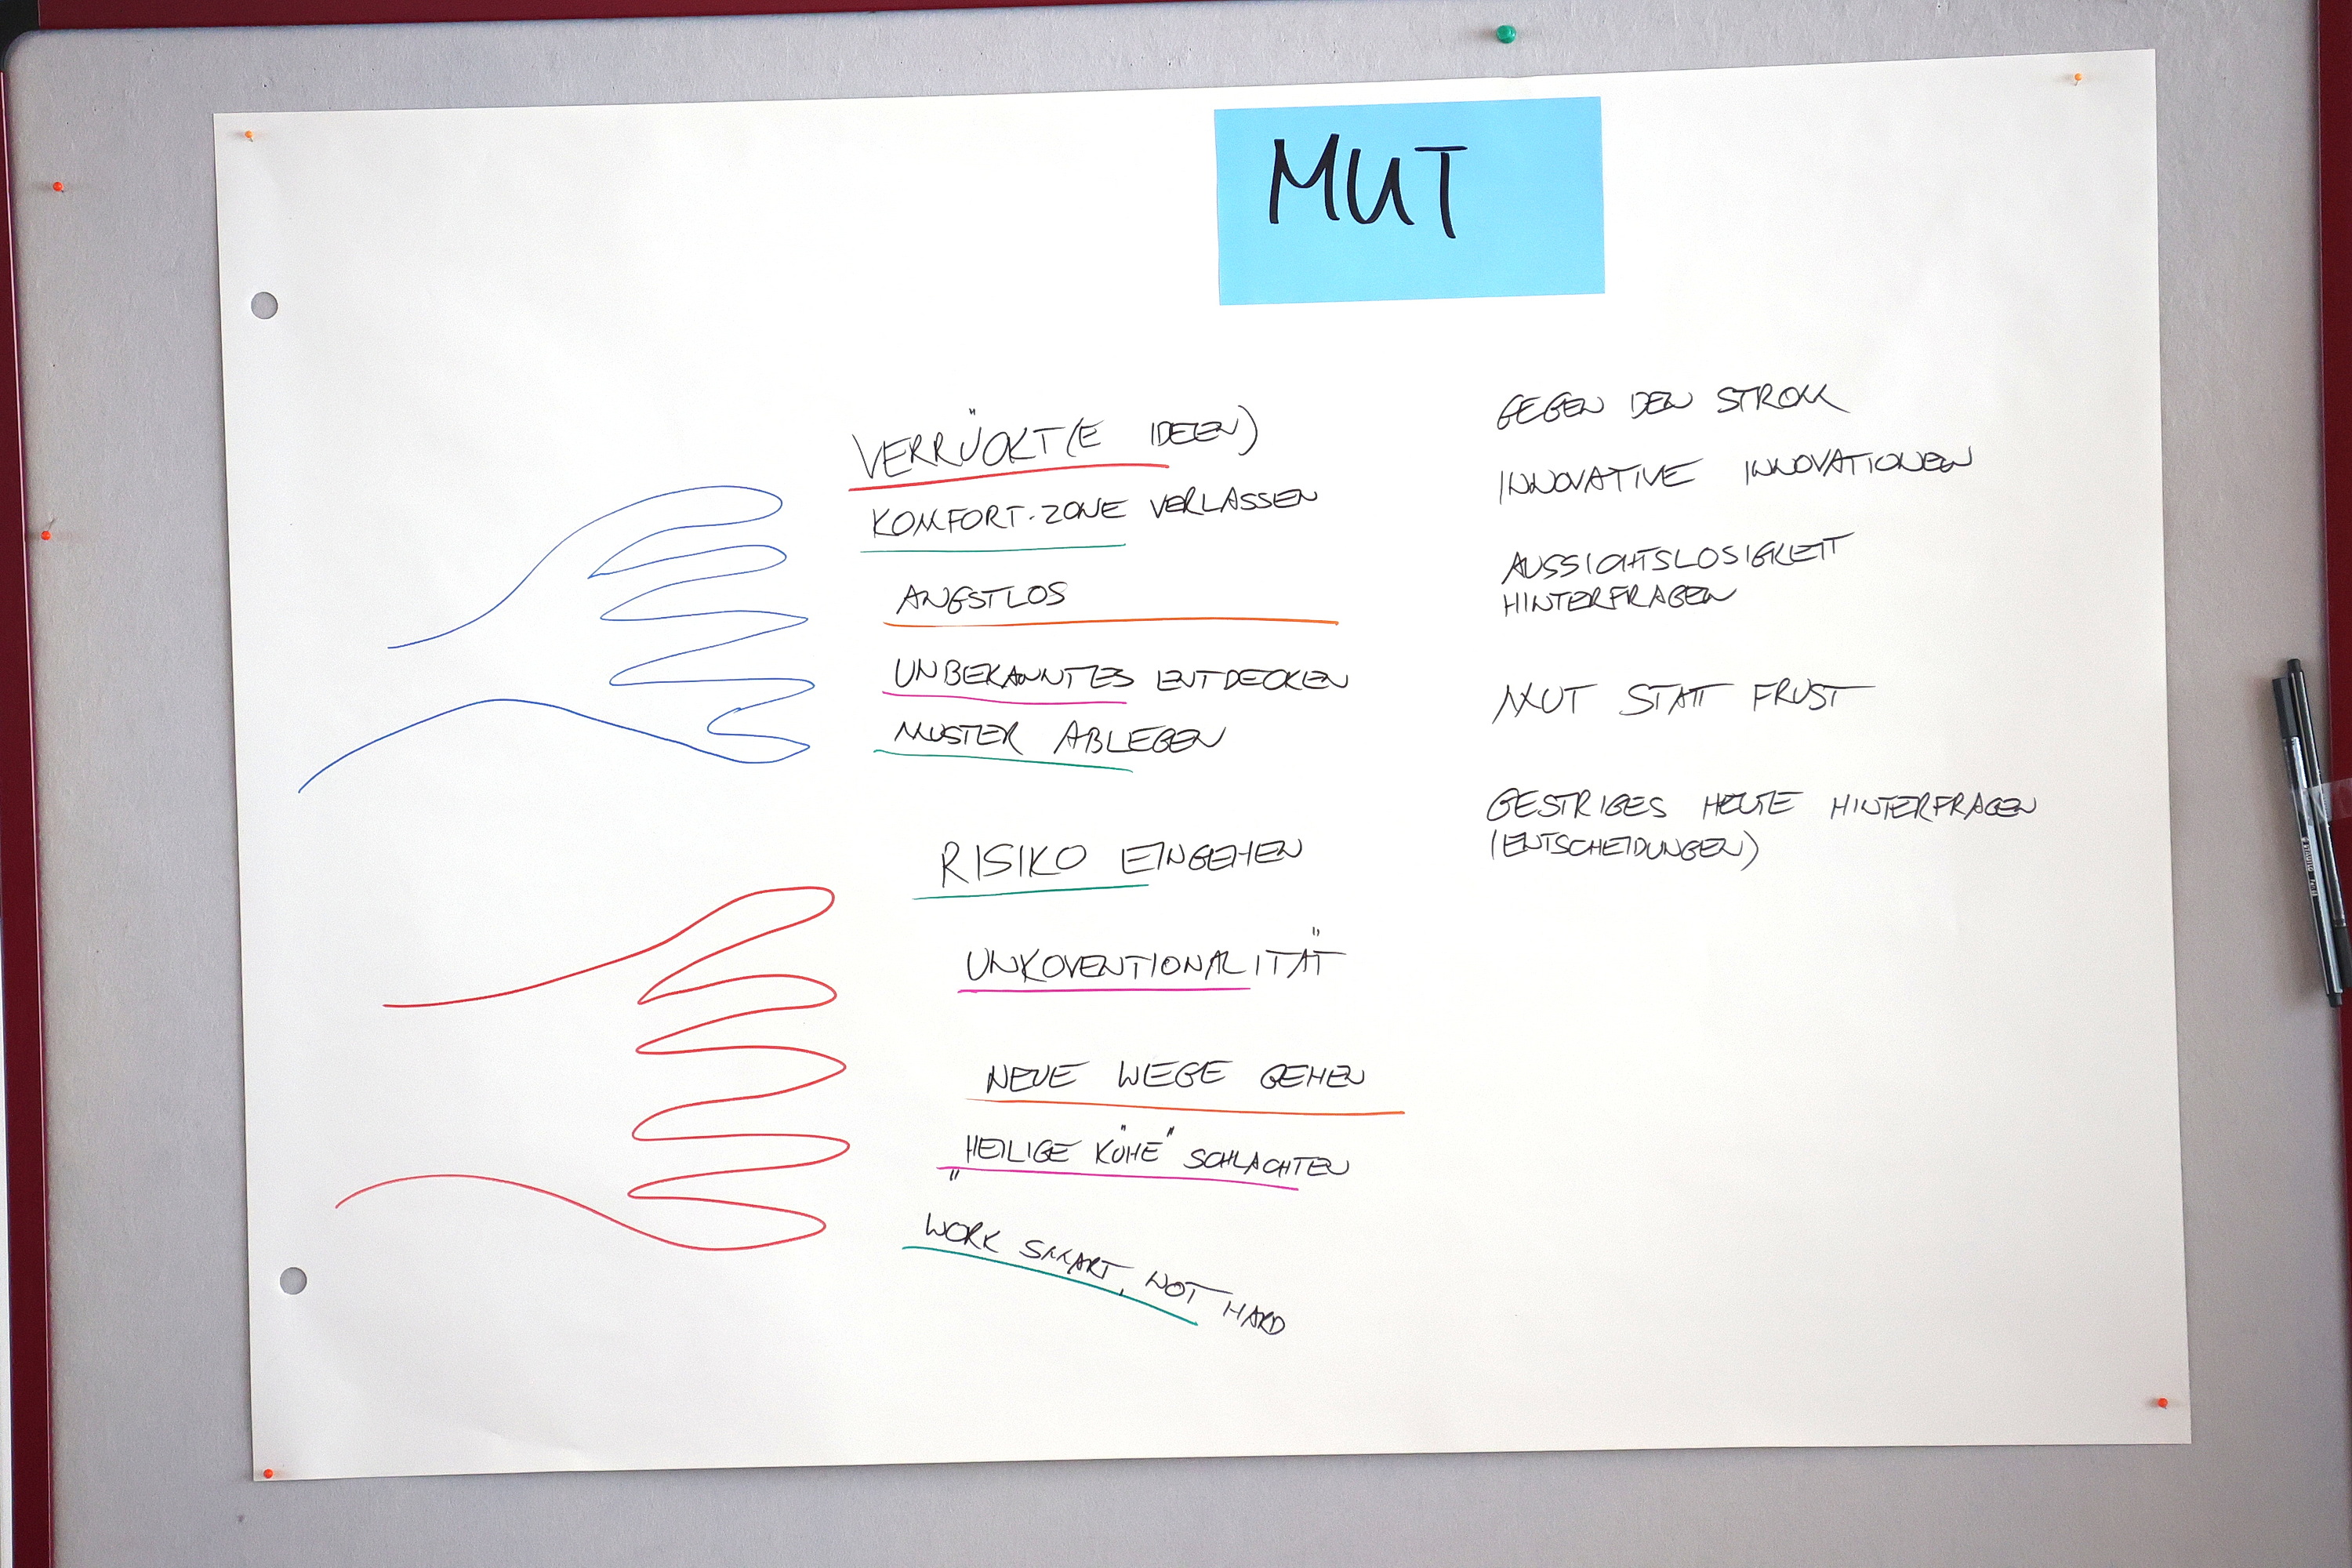 MUT
VERRÜCKT(E IDEEN)
KOMFORT-ZONE VERLASSEN
ANGSTLOS
UNBEKANNTES ENTDECKEN
MUSTER ABLEGEN
RISIKO EINGEHEN
UNKOVENTIONALITÄT
NEUE WEGE GEHEN
„HEILIGE KÜHE" SCHLACHTEN
WORK SMART, NOT HARD
GEGEN DEN STROM
INNOVATIVE INNOVATIONEN
AUSSICHTSLOSIGKEIT
HINTERFRAGEN
MUT STATT FRUST
GESTRIGES HEUTE HINTERFRAGEN
(ENTSCHEIDUNGEN)